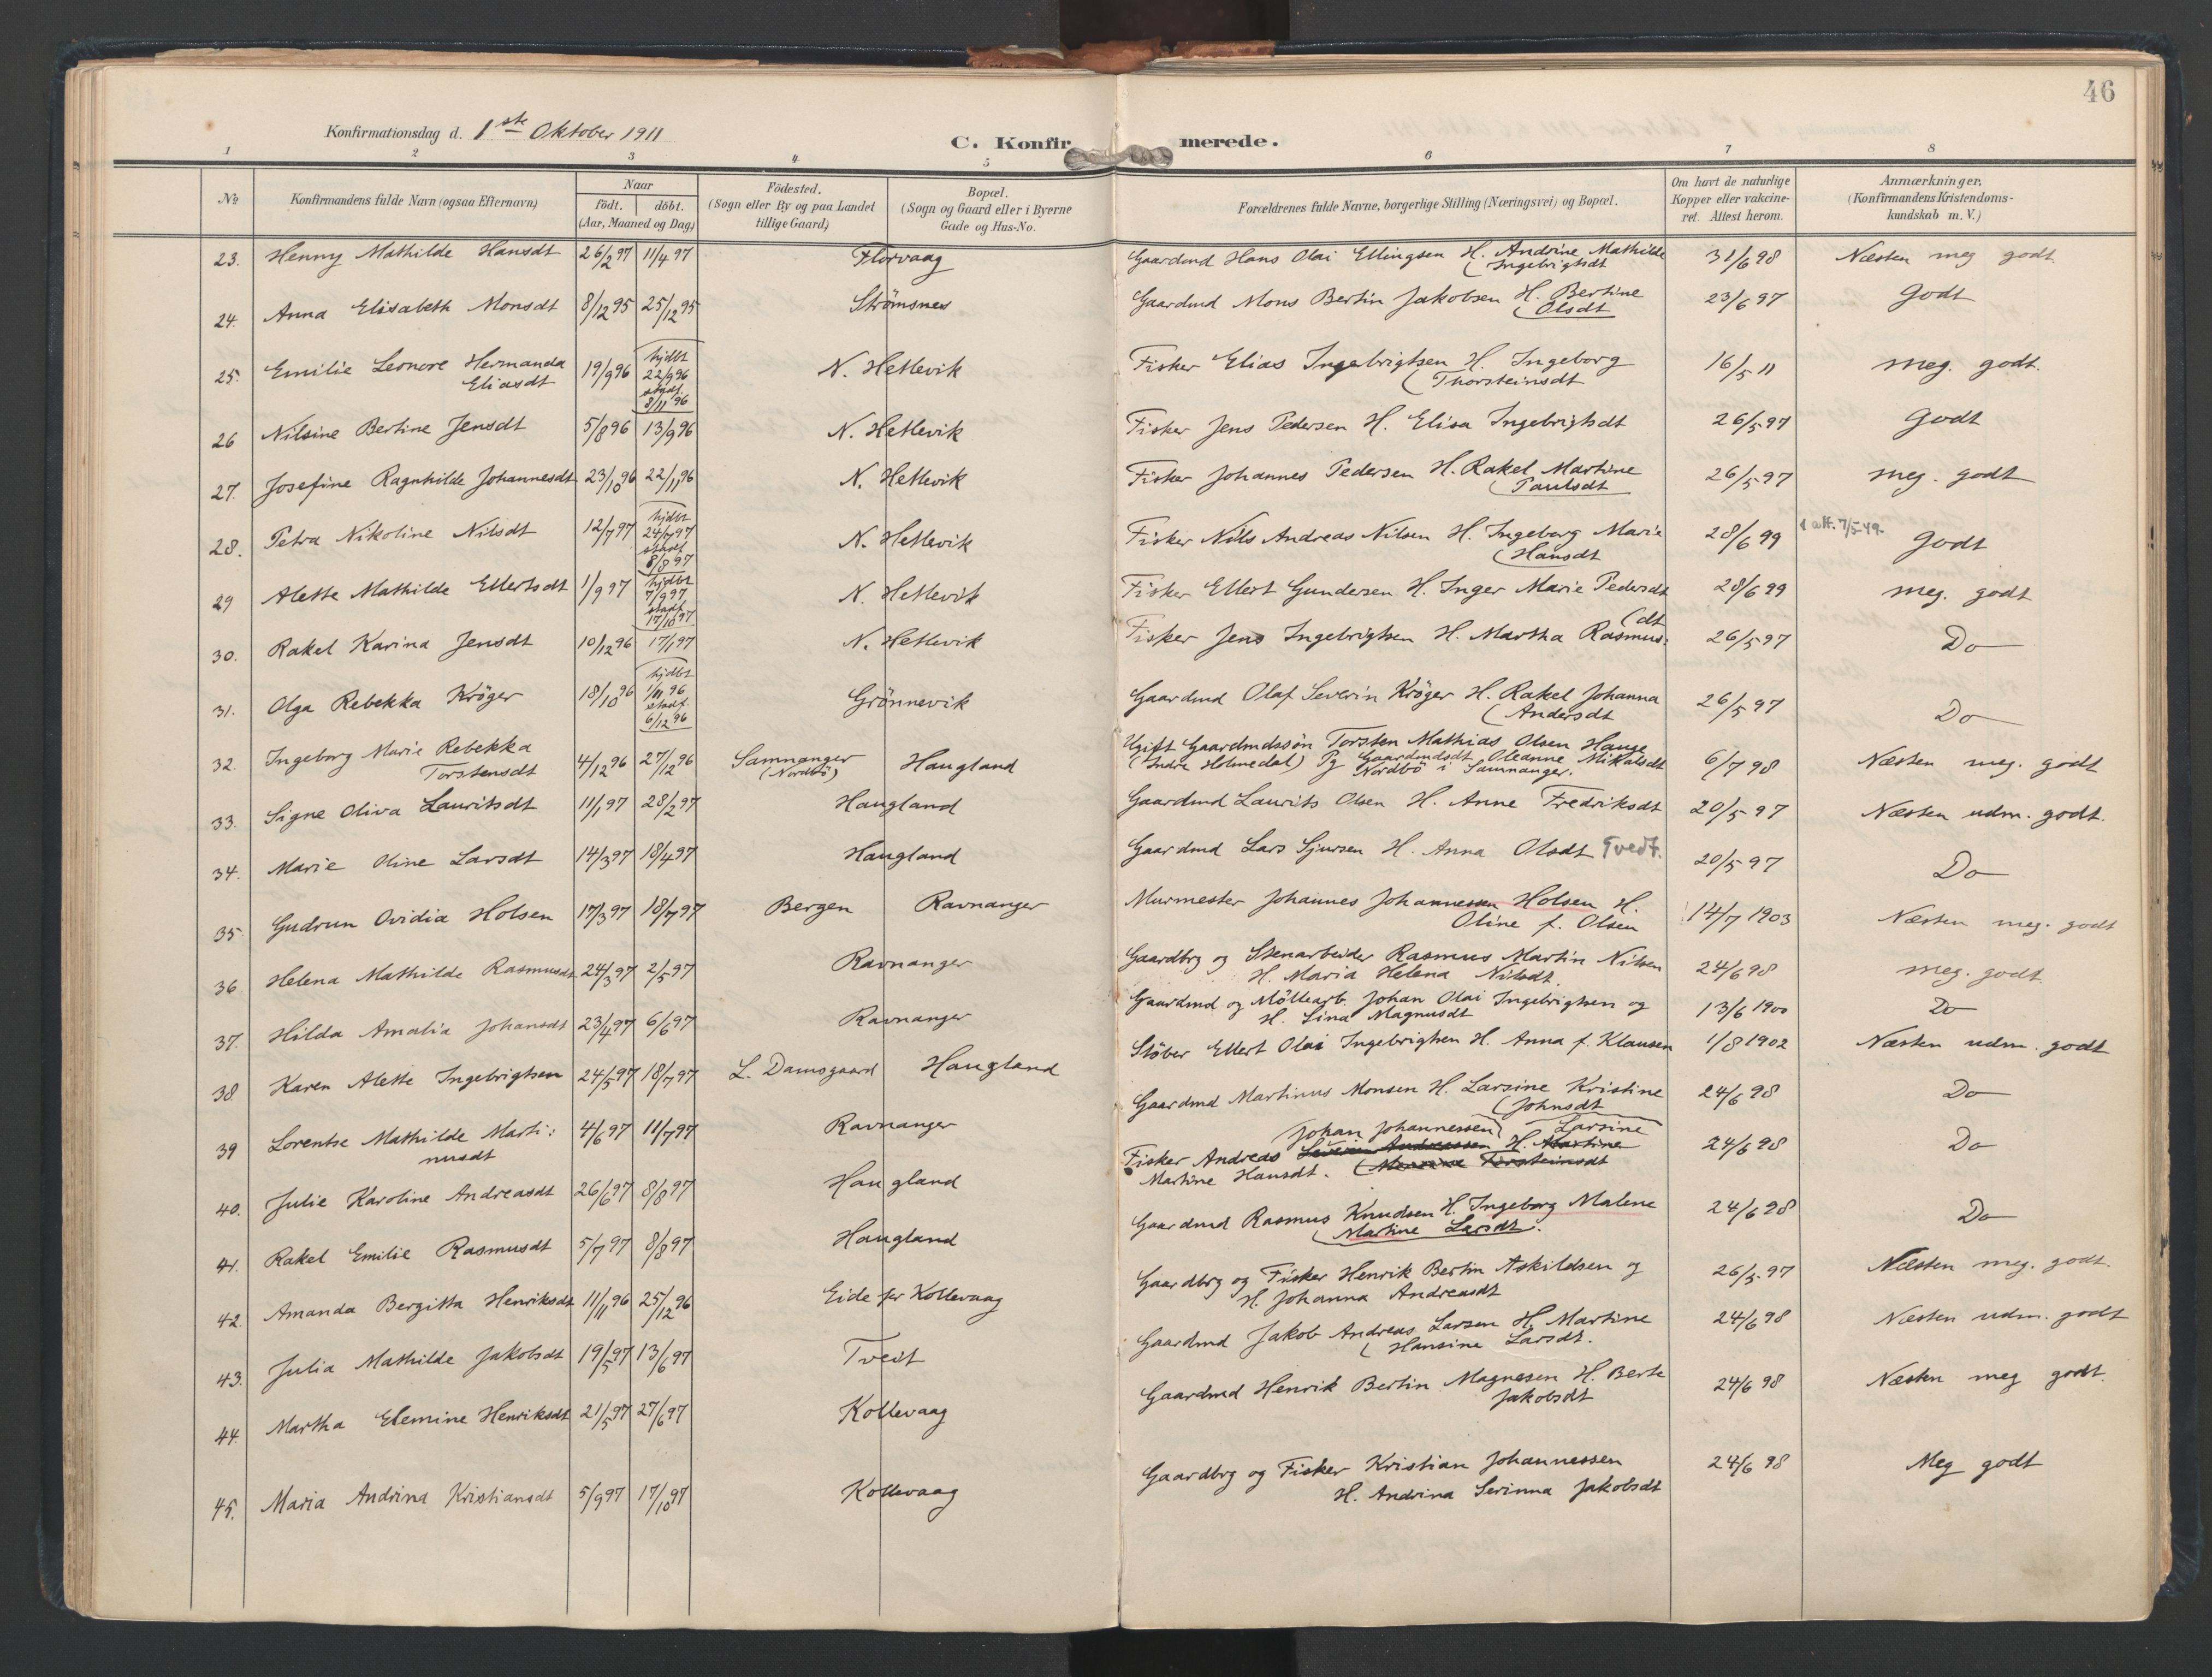 46
Konfirmationsdag d. 1ste Oktober 1911
C. Konfirmerede.
1 2 3 4 5 6 7 8
No
Konfirmandens fulde Navn (ogsaa Efternavn)
Naar
födt. döbt.
(Aar, Maaned og Dag)
Födested.
(Sogn eller By og paa Landet
tillige Gaard)
Bopæl.
(Sogn og Gaard eller i Byerne
Gade og Hus-No.
Forældrenes fulde Navne, borgerlige Stilling (Næringsvei) og Bopæl.
Om havt de naturlige
Kopper eller vakcine-
ret. Attest herom.
Anmærkninger.
(Konfirmandens Kristendoms-
kundskab m. V.)
23. Henny Mathilde Hansdt 26/2 97 11/4 97 Florvaag Gaardmd Hans Olai Ellingsen H. Andrine Mathilde
(Ingebrigtsdt 31/6 98 Næsten meg godt.
24. Anna Elisabeth Monsdt 8/12 95 25/12 95 Strömsnes Gaardmd Mons Bertin Jakobsen H. Bertine
(Olsdt 23/6 97 Godt
25. Emilie Leonore Hermanda
Eliasdt 19/9 96 hjdbt
22/9 96
stadf.
8/11 96 N. Hetlevik Fisker Elias Ingebrigtsen H. Ingeborg
(Thorsteinsdt 16/5 11 meg. godt.
26 Nilsine Bertine Jensdt 5/8 96 13/9 96 N. Hetlevik Fisker Jens Pedersen H. Elisa Ingebrigtsdt 26/5 97 Godt
27. Josefine Ragnhilde Johannesdt 23/10 96 22/11 96 N. Hetlevik Fisker Johannes Pedersen H. Rakel Martine
(Paulsdt 26/5 97 meg. godt
28. Petra Nikoline Nilsdt 12/7 97 hjdbt
24/7 97
stadf.
8/8 97 N. Hetlevik Fisker Nils Andreas Nilsen H. Ingeborg Marie
(Hansdt 28/6 99 1 att. 7/5-49. Godt
29 Alette Mathilde Ellertsdt 1/9 97 hjdbt
7/9 97
stadf.
17/10 97 N. Hetlevik Fisker Ellert Gundersen H. Inger Marie Pedersdt 28/6 99 meg. godt
30. Rakel Karina Jensdt 10/12 96 17/1 97 N. Hetlevik Fisker Jens Ingebrigtsen H. Martha Rasmus:
(dt 26/5 97 Do
31. Olga Rebekka Kröger 18/10 96 hjdbt
1/11 96
stadf.
6/12 96 Grönnevik Gaardmd Olaf Severin Kröger H. Rakel Johanna
(Andersdt 26/5 97 Do
32. Ingeborg Marie Rebekka
Torstensdt 4/12 96 27/12 96 Samnanger
(Nordbö) Haugland Ugift Gaardmdssön Torsten Mathias Olsen Hauge
(Indre Holmedal) Pg Gaardmdsdt Oleanne Mikalsdt
Nordbö i Samnanger. 6/7 98 Næsten meg. godt
33. Signe Oliva Lauritsdt 11/1 97 28/2 97 Haugland Gaardmd Laurits Olsen H. Anne Fredriksdt 20/5 97 Næsten udm. godt.
34. Marie Oline Larsdt 14/3 97 18/4 97 Haugland Gaardmd Lars Sjursen H. Anna Olsdt Tvedt. 20/5 97 Do
35 Gudrun Ovidia Holsen 17/3 97 18/7 97 Bergen Ravnanger Murmester Johannes Johannesen Holsen H.
Oline f. Olsen 14/7 1903 Næsten meg. godt
36 Helena Mathilde Rasmusdt 24/3 97 2/5 97 Ravnanger Gaardbrg og Stenarbeider Rasmus Martin Nilsen
H. Maria Helena Nilsdt. 24/6 98 meg. godt.
37. Hilda Amalia Johansdt 23/4 97 6/6 97 Ravnanger Gaardmd og Möllearb. Johan Olai Ingebrigtsen og
H. Lina Magnusdt 13/6 1900 Do
38 Karen Alette Ingebrigtsen 24/5 97 18/7 97 L. Damsgaard Haugland Stöber Ellert Olai Ingebrigtsen H. Anna f. Klausen 1/8 1902 Næsten udm. godt
39 Lorentse Mathilde Marti:
nusdt 4/6 97 11/7 97 Ravnanger Gaardmd Martinus Monsen H. Larsine Kristine
(Johnsdt 24/6 98 Do
40. Julie Karoline Andreasdt 26/6 97 8/8 97 Haugland Johan Johannessen) Larsine
Fisker Andreas Severin Andreassen H. Martine
Martine Hansdt. Torsteinsdt 24/6 98 Do
41. Rakel Emilie Rasmusdt 5/7 97 8/8 97 Haugland Gaardmd Rasmus Knudsen H. Ingeborg Malene
(Martine Larsdt. 24/6 98 Do
42. Amanda Bergitta Henriksdt 11/11 96 25/12 96 Eide per Kollevaag Gaardbrg og Fisker Henrik Bertin Askildsen og
H. Johanna Andreasdt 26/5 97 Næsten meg. godt.
43. Julia Mathilde Jakobsdt 19/5 97 13/6 97 Tveit Gaardmd Jakob Andreas Larsen H. Martine
(Hansine Larsdt. 24/6 98 Næsten udm. godt
44. Martha Elemine Henriksdt 21/5 97 27/6 97 Kollevaag Gaardmd Henrik Bertin Magnesen H. Berte
Jakobsdt 24/6 98 Næsten meg godt.
45. Maria Andrina Kristiansdt 5/9 97 17/10 97 Kollevaag Gaardbrg og Fisker Kristian Johannessen
H. Andrina Serinna Jakobsdt 24/6 98 Meg godt